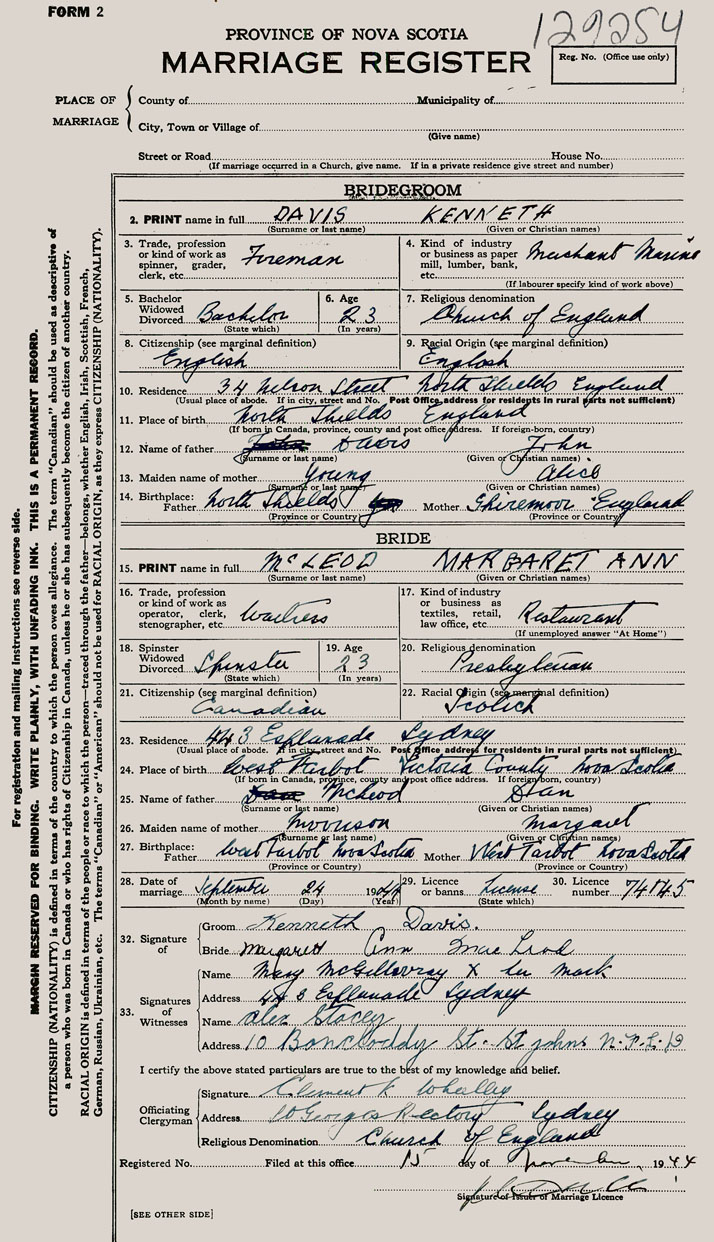 FORM 2
129254
PROVINCE OF NOVA SCOTIA
MARRIAGE REGISTER
Reg. No. (Office use only)
PLACE OF MARRIAGE
County of Municipality of
City, Town or Village of
(Give name)
Street or Road House No.
(If marriage occurred in a Church, give name. If in a private residence give street and number)
BRIDEGROOM
2. PRINT name in full DAVIS KENNETH
(Surname or last name) (Given or Christian names)
3. Trade, profession or kind of work as spinner, grader, clerk, etc. Fireman
4. Kind of industry or business as paper mill, lumber, bank, etc. Merchant Marine
(If labourer specify kind of work above)
5. Bachelor Widowed Divorced Bachelor
(State which)
6. Age 23
(In years)
7. Religious denomination Church of England
8. Citizenship (see marginal definition) English
9. Racial Origin (see marginal definition) English
10. Residence 34 Nelson Street North Shields England
(Usual place of abode. If in city, street and No. Post Office address for residents in rural parts not sufficient)
11. Place of birth North Shields England
(If born in Canada, province, county and post office address. If foreign-born, country)
12. Name of father Davis John
(Surname or last name) (Given or Christian names)
13. Maiden name of mother Young Alice
(Surname or last name) (Given or Christian names)
14. Birthplace: Father North Shields Mother Shiremoor England
(Province or Country) (Province or Country)
BRIDE
15. PRINT name in full McLEOD MARGARET ANN
(Surname or last name) (Given or Christian names)
16. Trade, profession or kind of work as operator, clerk, stenographer, etc. Waitress
17. Kind of industry or business as textiles, retail, law office, etc. Restaurant
(If unemployed answer "At Home")
18. Spinster Widowed Divorced Spinster
(State which)
19. Age 23
(In years)
20. Religious denomination Presbyterian
21. Citizenship (see marginal definition) Canadian
22. Racial Origin (see marginal definition) Scotich
23. Residence 443 Esplanade Sydney
(Usual place of abode. If in city, street and No. Post Office address for residents in rural parts not sufficient)
24. Place of birth West Tarbot Victoria County Nova Scotia
(If born in Canada, province, county and post office address. If foreign born, country)
25. Name of father McLeod Dan
(Surname or last name) (Given or Christian names)
26. Maiden name of mother Morrison Margaret
(Surname or last name) (Given or Christian names)
27. Birthplace: Father West Tarbot Nova Scotia Mother West Tarbot Nova Scotia
(Province or Country) (Province or Country)
28. Date of marriage September 24 1944
(Month by name) (Day) (Year)
29. Licence or banns License
(State which)
30. Licence number 74145
32. Signature of
Groom Kenneth Davis.
Bride Margaret Ann Mac Leod
33. Signatures of Witnesses
Name Mary McGillovray X her mark
Address 443 Esplanade Sydney
Name Alex Stacey
Address 10 St. St Johns N.F.L.D
I certify the above stated particulars are true to the best of my knowledge and belief.
Officiating Clergyman
Signature Clement Whalley
Address St Georges Rectory Sydney
Religious Denomination Church of England
Registered No. Filed at this office 15 day of November 1944
Signature of Issuer of Marriage Licence
[SEE OTHER SIDE]
For registration and mailing instructions see reverse side.
MARGIN RESERVED FOR BINDING. WRITE PLAINLY, WITH UNFADING INK. THIS IS A PERMANENT RECORD.
CITIZENSHIP (NATIONALITY) is defined in terms of the country to which the person owes allegiance. The term "Canadian" should be used as descriptive of
a person who was born in Canada or who has rights of Citizenship in Canada, unless he or she has subsequently become the citizen of another country.
RACIAL ORIGIN is defined in terms of the people or race to which the person—traced through the father—belongs, whether English, Irish, Scottish, French,
German, Russian, Ukrainian, etc. The terms "Canadian" or "American" should not be used for RACIAL ORIGIN, as they express CITIZENSHIP (NATIONALITY).